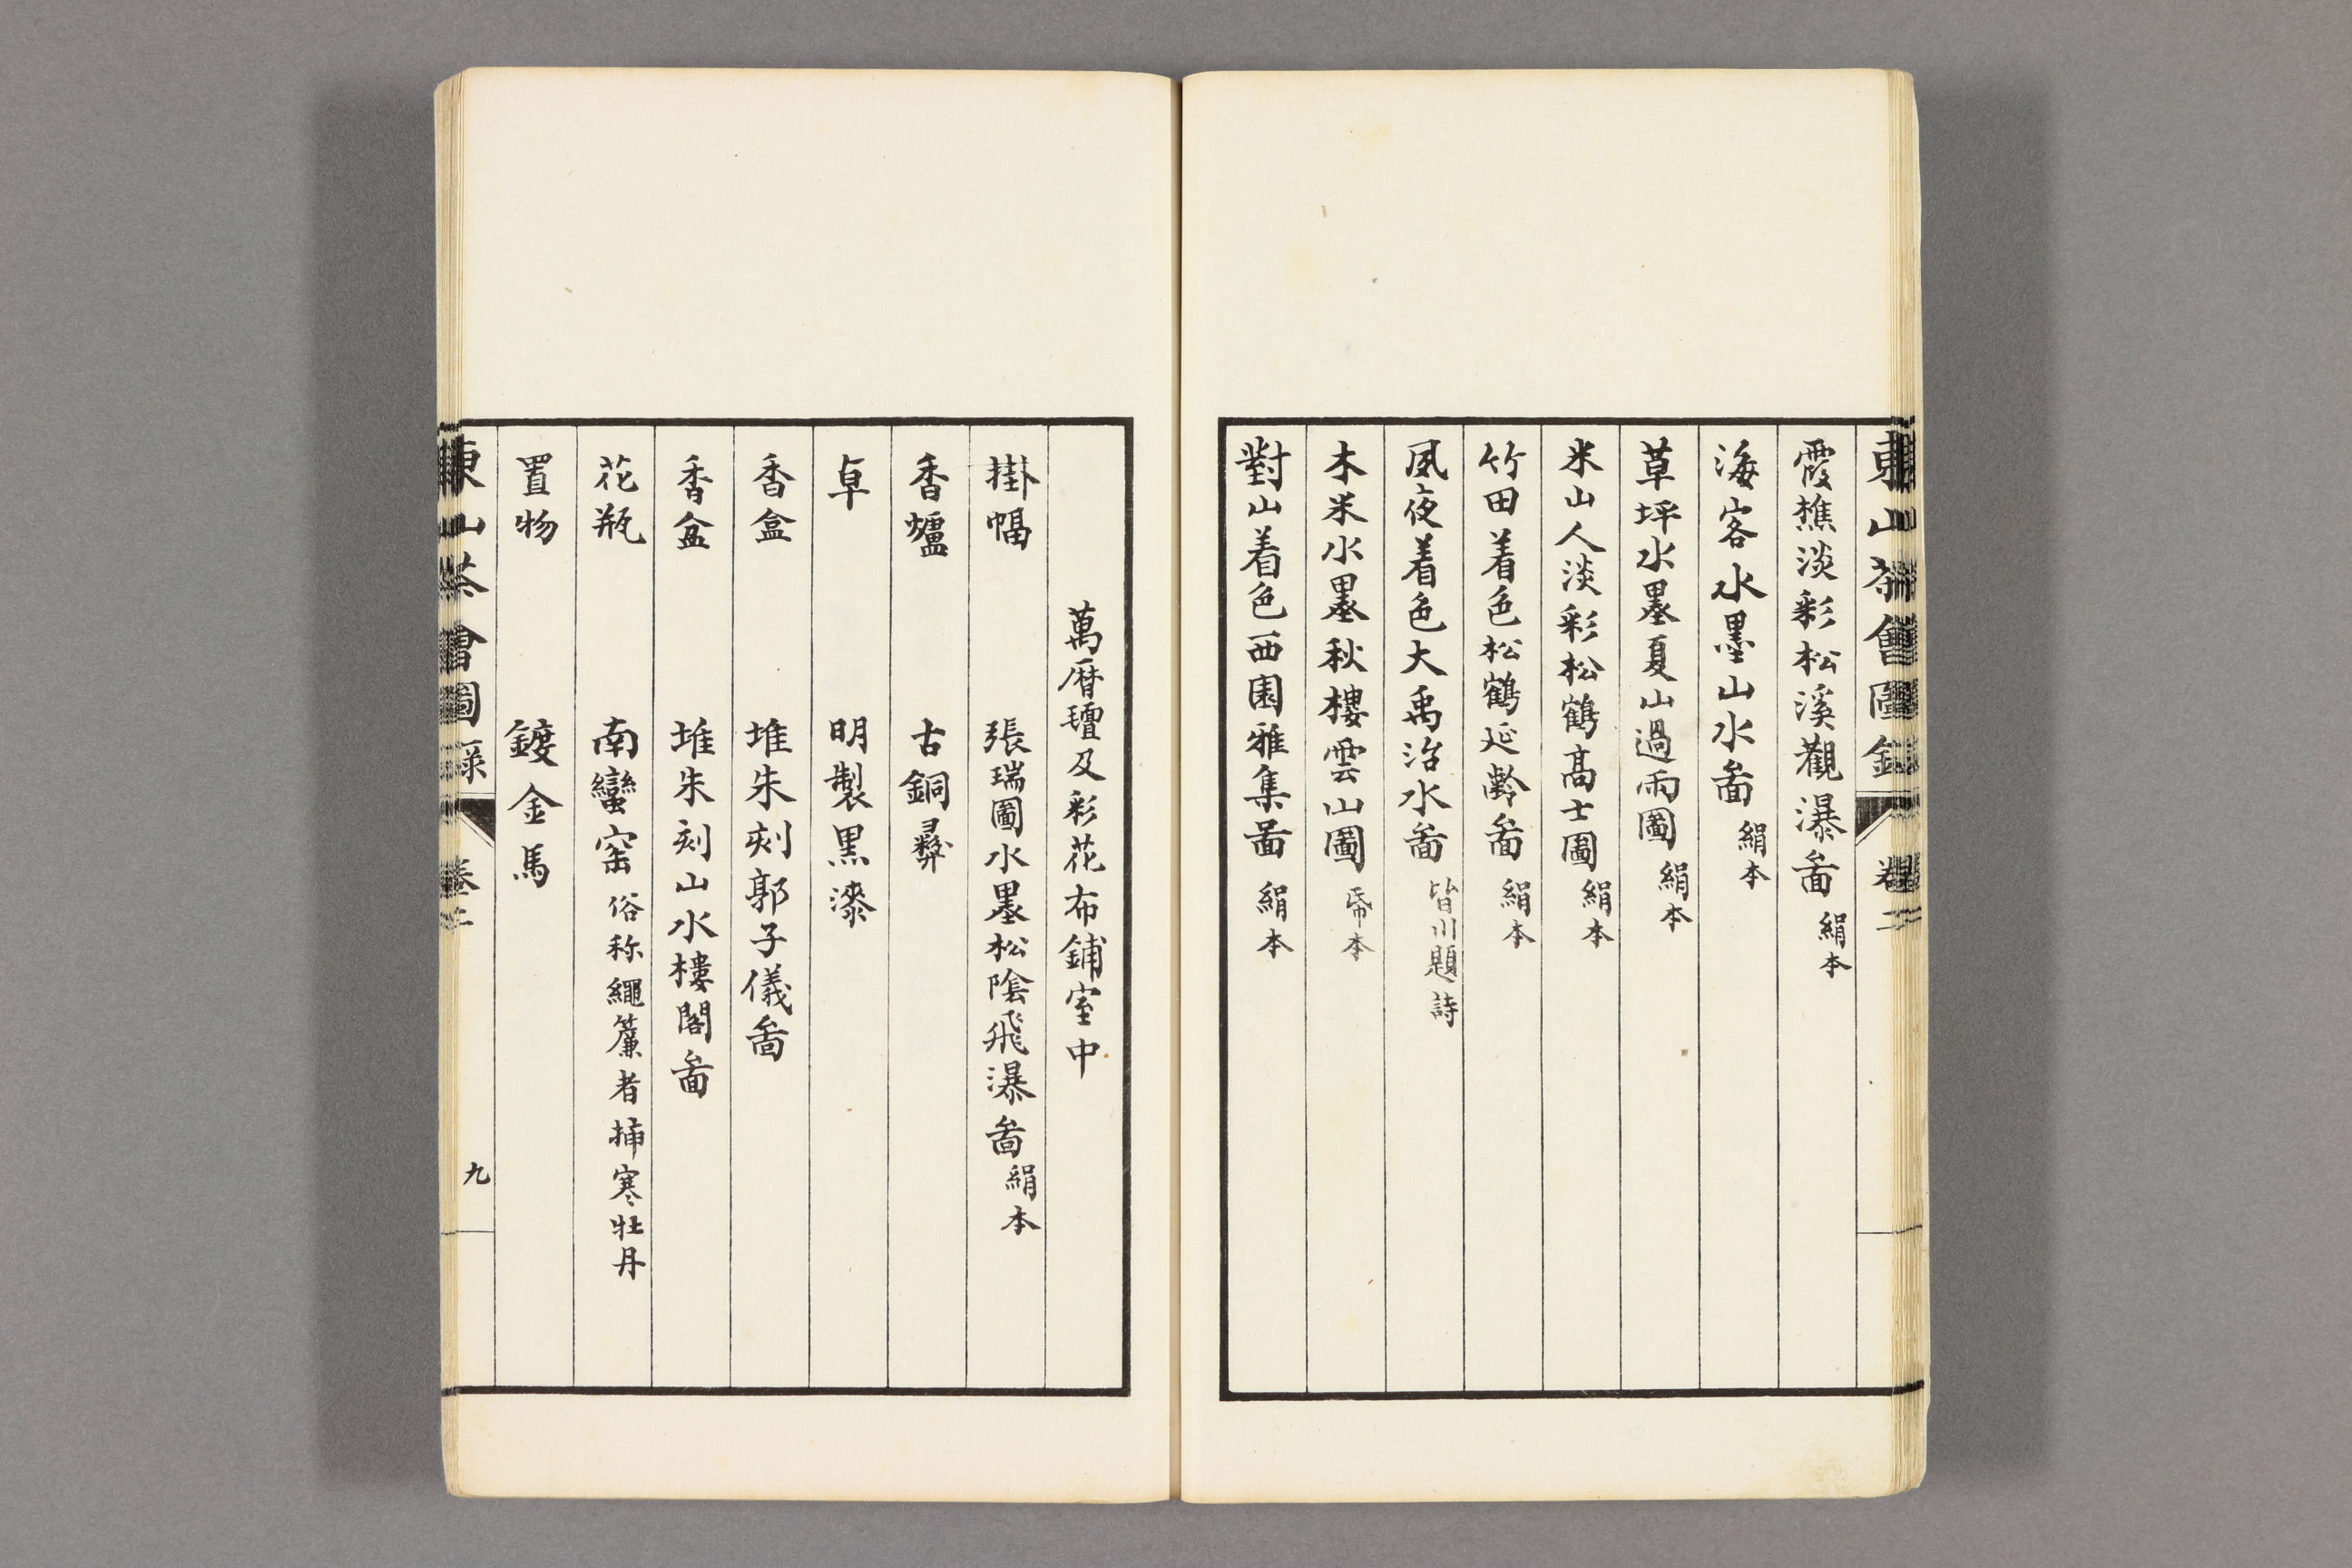 東山茶會圖錄 卷二
霞樵淡彩松溪觀瀑啚 絹本
海客水墨山水啚 絹本
草坪水墨夏山過雨圖 絹本
米山人淡彩松鶴高士圖 絹本
竹田着色松鶴延齡啚 絹本
夙夜着色大禹治水啚 皆川題詩
木米水墨秋樓雲山圖 帋本
對山着色西園雅集啚 絹本
萬曆氊及彩花布鋪室中
掛幅 張瑞圖水墨松陰飛瀑啚 絹本
香爐 古銅彝
卓 明製黑漆
香盒 堆朱刻郭子儀啚
香盆 堆朱刻山水樓閣啚
花瓶 南蠻窑 俗称繩簾者揷寒牡丹
置物 鍍金馬
東山茶會圖錄 卷二 九